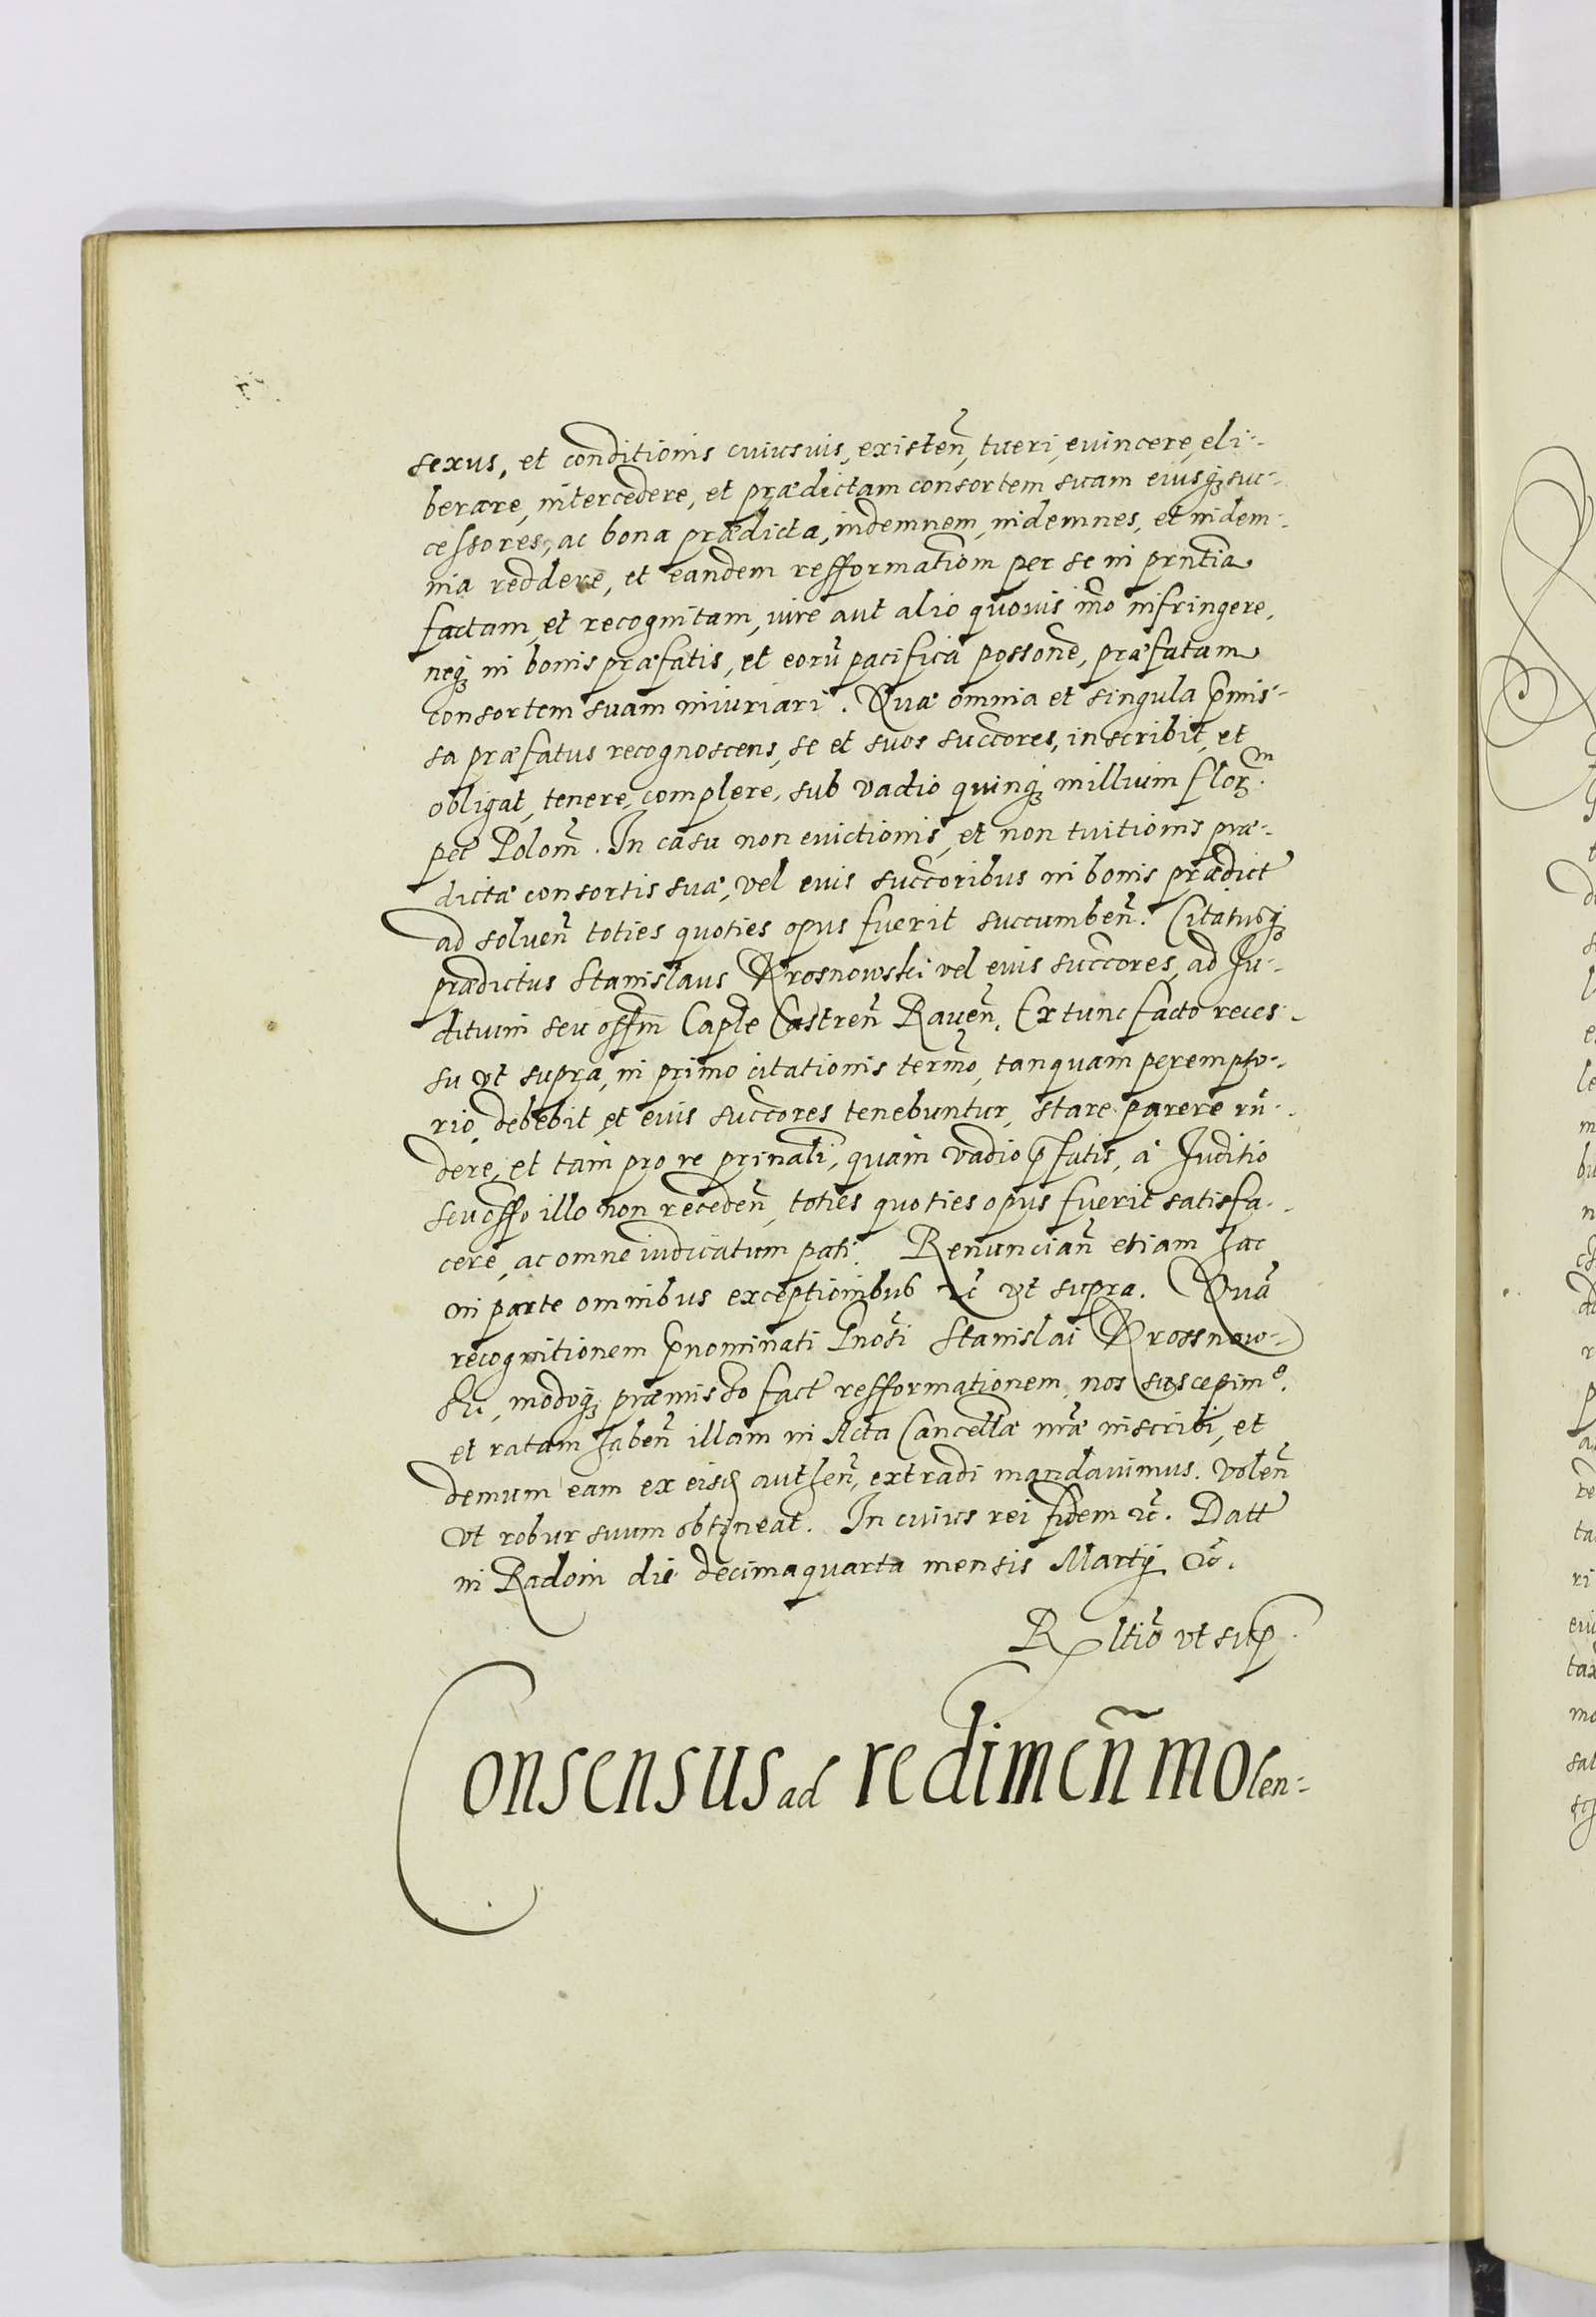 sexus, et conditionis cuiusuis, existen̄, tueri, euincere, eli-
berare, intercedere, et prædictam consortem suam eiusq; suc-
cessores, ac bona prædicta, indemnem, indemnes, et indem-
nia reddere, et eandem refformatiōm per se in prn̄tia
factam, et recognitam, iure aut alio quouis mō infringere,
neq; in bonis præfatis, et eorū pacifica posson̄e, præfatam
consortem suam iniuriari. Quæ omnia et singula p̄mis-
sa præfatus recognoscens, se et suos succōres, inscribit, et
obligat, tenere, complere, sub vadio quinq; millium flor.m
pec̄ Polon̄. In casu non euictionis, et non tuitionis præ-
dictæ consortis suæ, vel eius succōribus in bonis prædict
ad soluen̄ toties quoties opus fuerit succumben̄. Citatusq;
prædictus Stanislaus Drosnowski vel eius succōres, ad Ju-
ditium seu off̄m Cap̄le Castren̄ Rauen̄. Ex tunc facto reces-
su vt supra, in primo citationis term̄o, tanquam perempto-
rio, debebit, et eius succōres tenebuntur, stare parere rn̄-
dere, et tam pro re prin̄ali, quam vadio p̄fatis, a Juditio
seu off̄o illo non receden̄, toties quoties opus fuerit satisfa-
cere, ac omne iudicatum pati. Renuncian̄ etiam hac
in parte omnibus exceptionibus etc̄ vt supra. Quā
recognitionem p̄nominati Gn̄osi Stanislai Drossnow-
ski, modoq; præmisso fact refformationem, nos suscepim9.
et ratam haben̄ illam in Acta Cancell̄æ nr̄æ inscribi, et
demum eam ex eisd authen̄, extradi mandauimus. Volen̄
vt robur suum obtineat. In cuius rei fidem etc̄. Datt
in Radom die decima quarta mensis Martij etc̄.
R̄ltiō vt sup̄
Consensus ad redimen̄ molen-